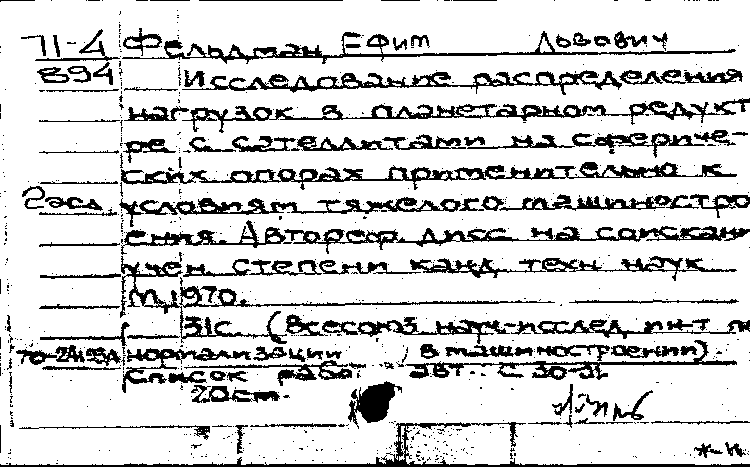 71-4 Фельдман, Ефим Львович
894 Исследование распределения
нагрузок в планетарном редукт
ре с сателлитами на сфериче-
ских опорах применительно к
2экз. условиям тяжелого машиностро
ения. Автореф. дисс. на соискани
учен. степени канд. техн. наук
М., 1970.
31с. (Всесоюз науч-исслед ин-т по
нормализации в машиностроении).
Список раб. авт.: с 30-31
20см.